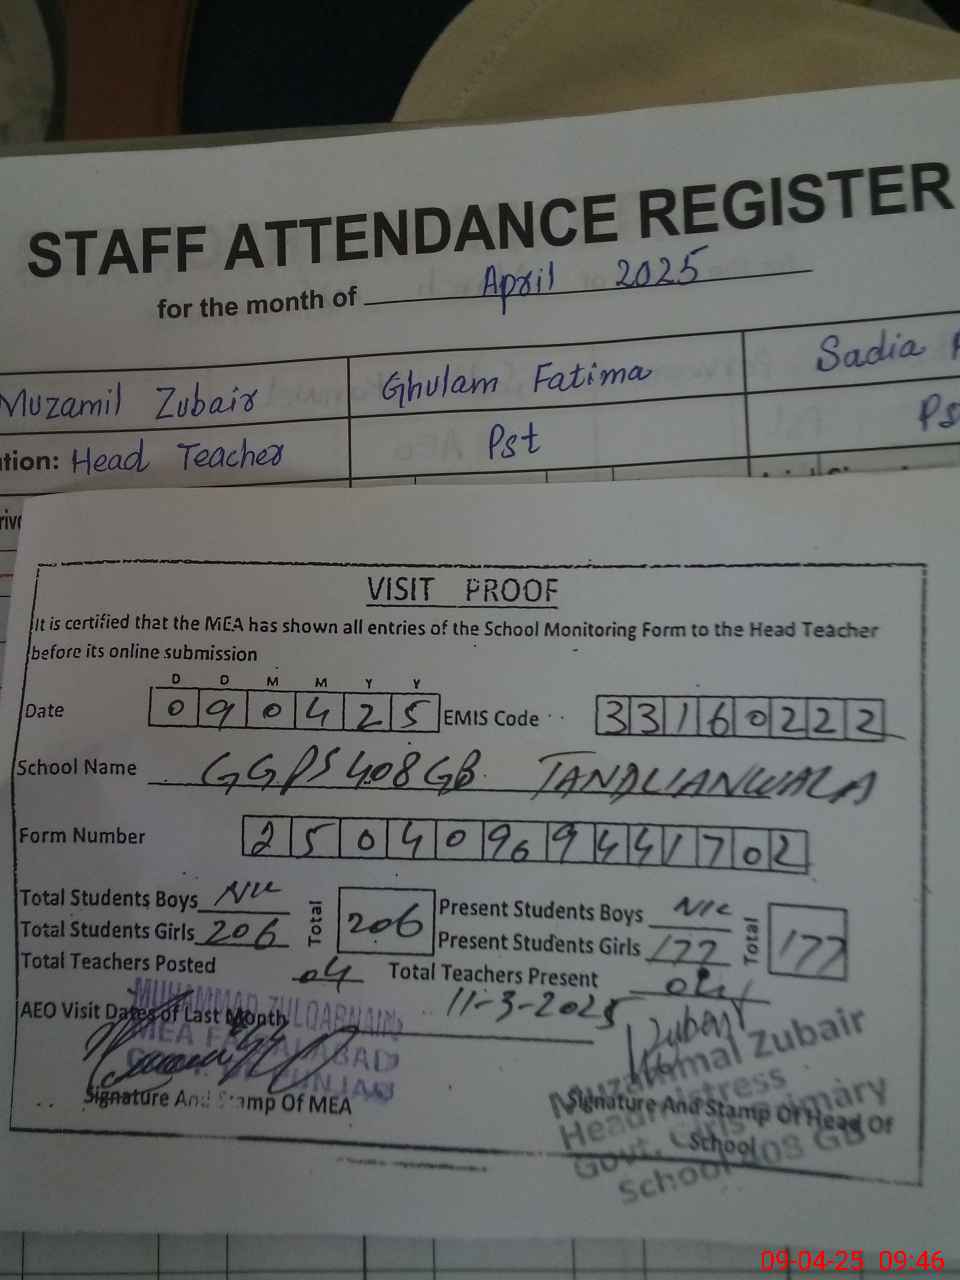 STAFF ATTENDANCE REGISTER
for the month of April 2025
Muzamil Zubair Ghulam Fatima Sadia
tion: Head Teacher Pst Ps
VISIT PROOF
It is certified that the MEA has shown all entries of the School Monitoring Form to the Head Teacher
before its online submission
D D M M Y Y
Date 0 9 0 4 2 5 EMIS Code 3 3 1 6 0 2 2 2
School Name GGPS 408 GB TANDLIANWALA
Form Number 2 5 0 4 0 9 6 9 4 4 1 7 0 2
Total Students Boys Nil Total 206 Present Students Boys Nil Total 177
Total Students Girls 206 Present Students Girls 177
Total Teachers Posted 04 Total Teachers Present 04
AEO Visit Dates of Last Month 11-3-2025
MUHAMMAD ZULQARNAIN
MEA FAISALABAD
PUNJAB
Signature And Stamp Of MEA
Zubair
Muzammal Zubair
Headmistress
Govt. Girls Primary
School 408 GB
Signature And Stamp Of Head Of
School
09-04-25 09:46